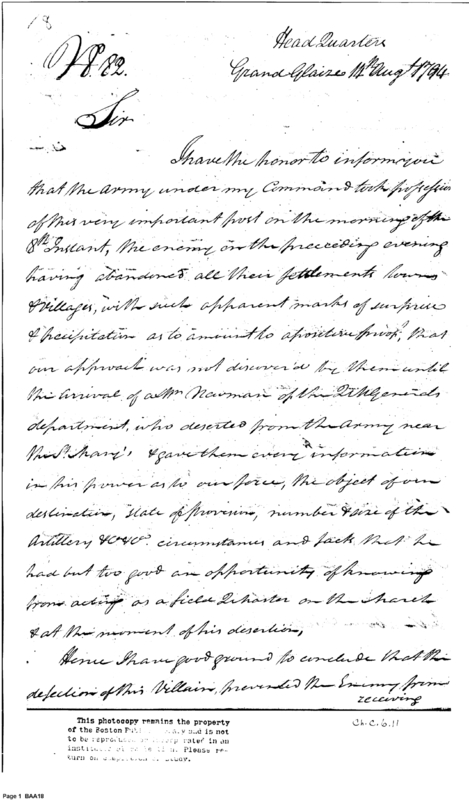 No. 82.
Head Quarters
Grand Glaize 14th Augt 1794
Sir
I have the honor to inform you
that the Army under my Command took possession
of this very important post on the morning of the
8th Instant, the enemy on the preceeding evening
having abandoned all their settlements towns
& Villages, with such apparent marks of surprise
& precipitation as to amount to a positive proof, that
our approach was not discover'd by them until
the arrival of a Mr. Newman of the Q M Generals
department, who deserted from the Army near
the St. Mary's & gave them every information
in his power as to our force, the object of our
destination, state of provision, number & size of the
Artillery &c &c. circumstances and facts that he
had but too good an opportunity of knowing
from acting as a field Q Master on the march
& at the moment of his desertion,
Hence I have good ground to conclude that the
defection of this Villain, prevented the Enemy from
receiving
This photocopy remains the property
of the Boston Public Library and is not
to be
in an
Please re-
turn on completion of study.
Ch.C.6.11
Page 1 BAA18